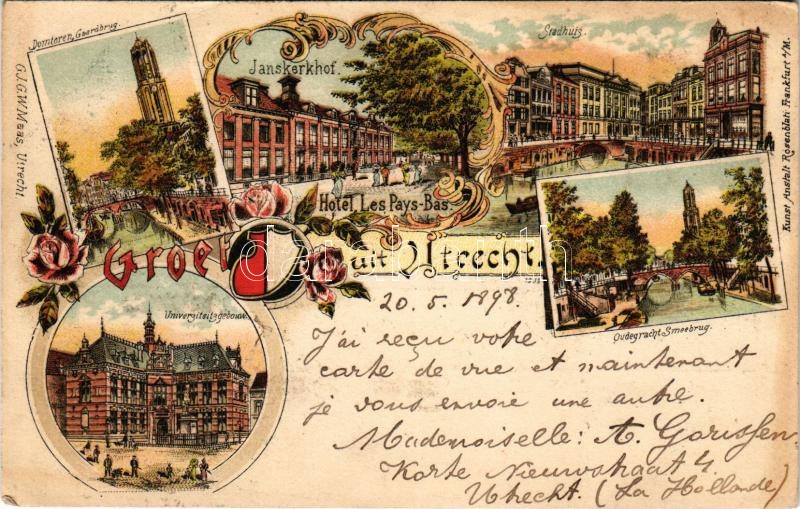 Domtoren, Gaardbrug.
Janskerkhof.
Hotel Les Pays-Bas
Stadhuis.
G.J.G.W. Maas, Utrecht.
Kunst-Anstalt Rosenblatt Frankfurt a/M.
Groet uit Utrecht.
Oudegracht Smeebrug.
Universiteitsgebouw.
20.5.1898.
J'ai reçu votre
carte de vue et maintenant
je vous envoie une autre.
Mademoiselle: A. Gorissen
Korte Nieuwstraat 4
Utrecht. (La Hollande)